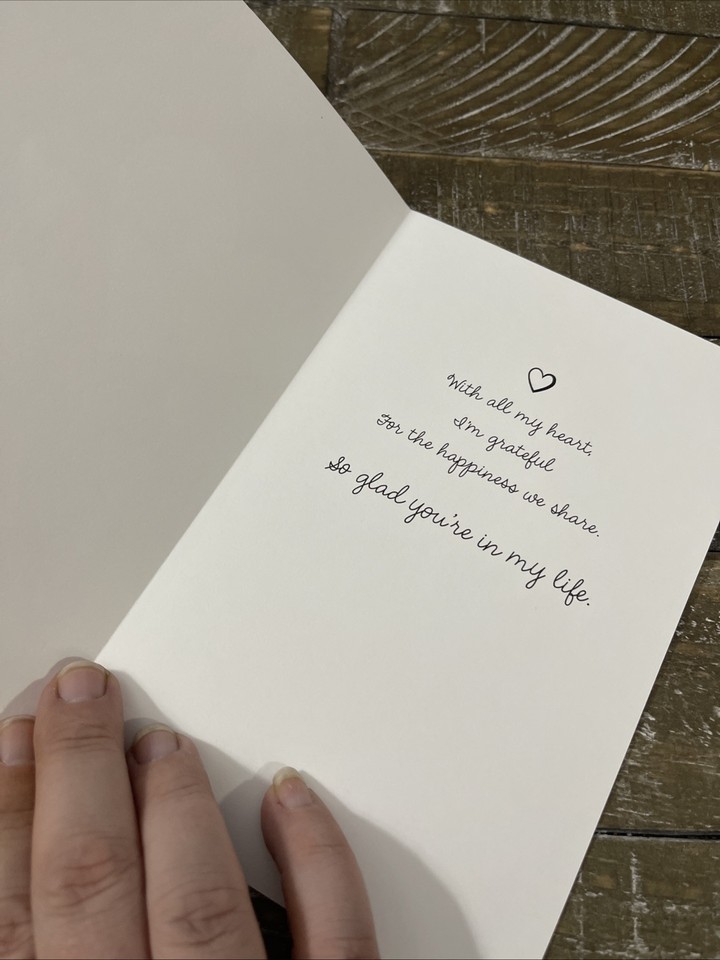 With all my heart,
I'm grateful
For the happiness we share.
So glad you're in my life.